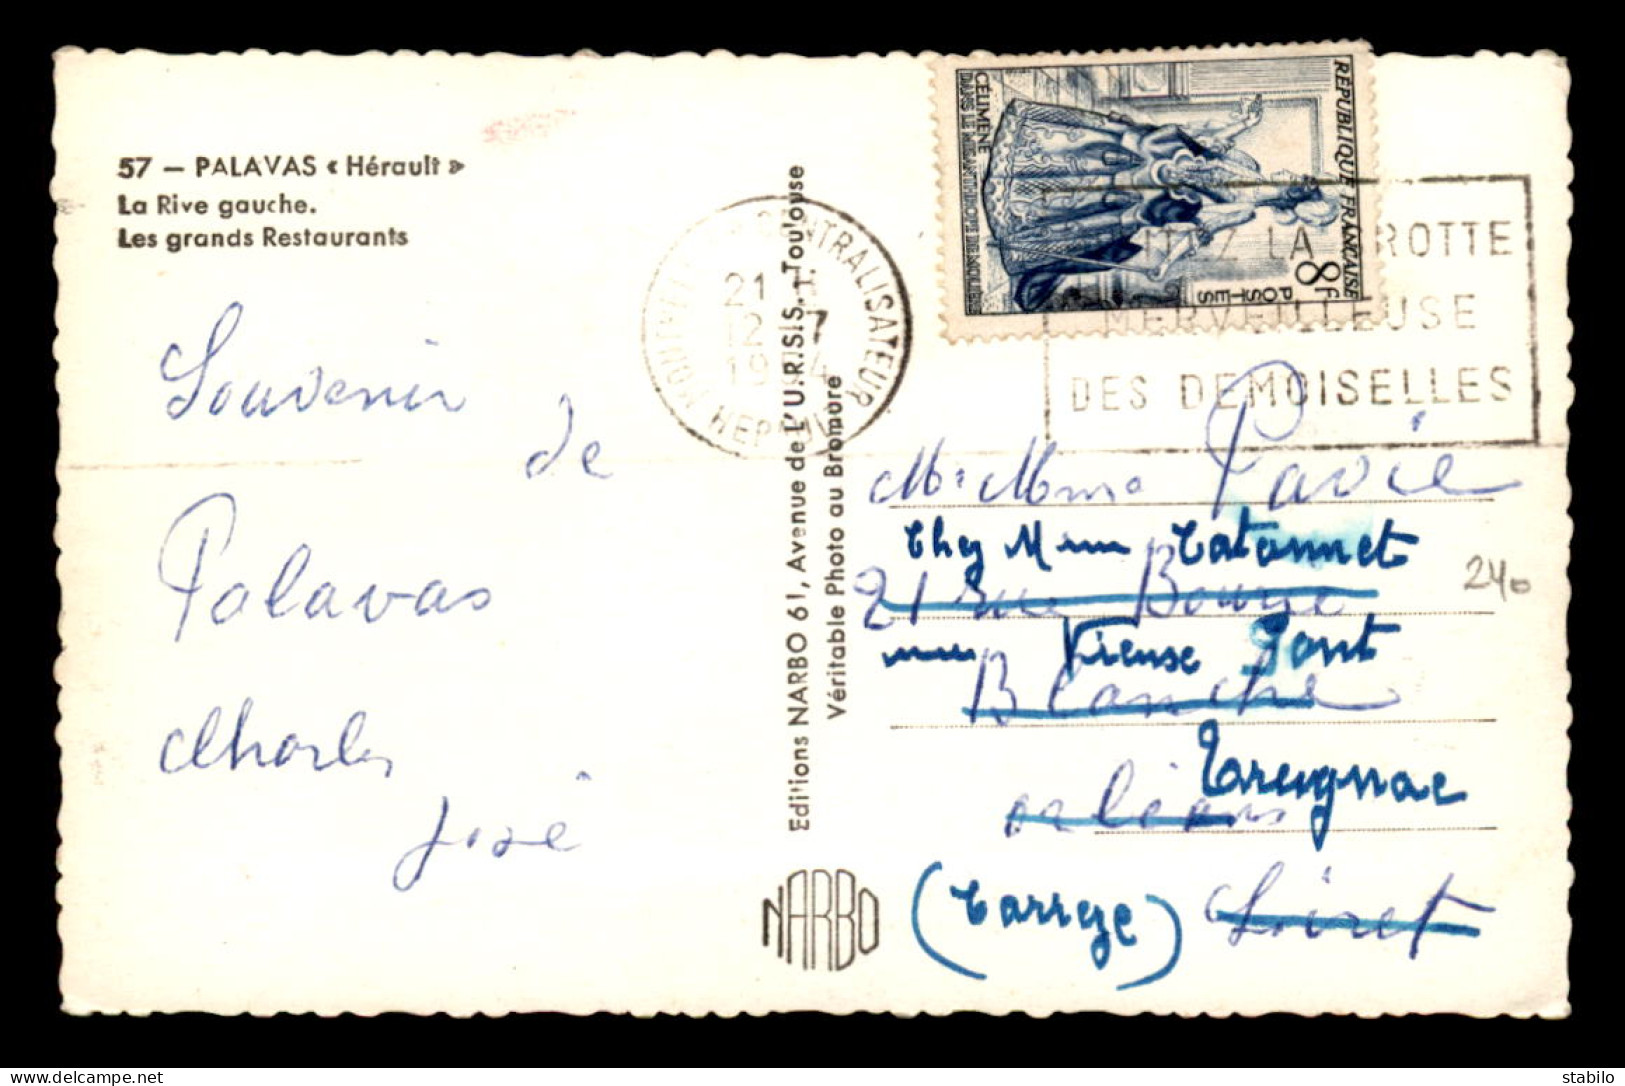 57 — PALAVAS « Hérault »
La Rive gauche.
Les grands Restaurants
Souvenir
de
Palavas
Charles
José
Editions NARBO 61, Avenue de l'U.R.S.S. Toulouse
Véritable Photo au Bromure
NARBO
CENTRALISATEUR
21 H
12 - 7
1954
HERAULT
REPUBLIQUE FRANÇAISE
8F
POSTES
CÉLIMÈNE
DANS LE MISANTHROPE DE MOLIÈRE
LA GROTTE
MERVEILLEUSE
DES DEMOISELLES
Mr Mme Pavie
Chez Mme
21 Rue Bourse
Blanche
Orléans
Loiret
Treignac
(Corrèze)
240